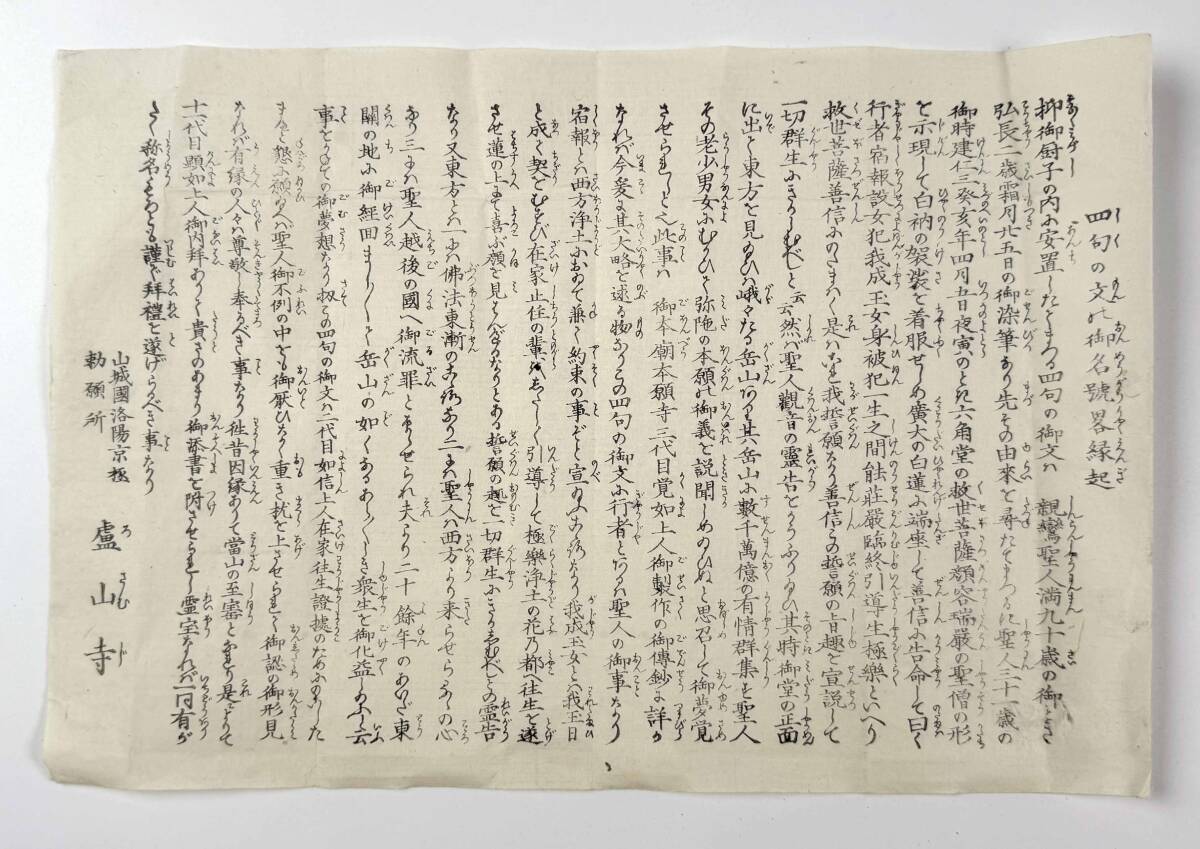 四句の文の御名號畧縁起
抑御厨子の内に安置したてまつる四句の御文ハ 親鸞聖人満九十歳の御とき
弘長二歳霜月廿五日の御染筆なり先その由來を尋たてまつるに聖人三十一歳の
御時建仁三癸亥年四月五日夜寅のとき六角堂の救世菩薩顔容瑞厳の聖僧の形
を示現して白衲の袈裟を着服せしめ廣大の白蓮に端座して善信に告命して曰く
行者宿報設女犯我成玉女身被犯一生之間能荘厳臨終引導生極樂といへり
救世菩薩善信にのたまハく是ハこれ我誓願なり善信この誓願の旨趣を宣説して
一切群生にきかしむべしと云云然バ聖人觀音の靈告をかうふり給ひ其時御堂の正面
に出て東方を見給へバ峨々たる岳山あり其岳山に數千萬億の有情群集を聖人
その老少男女にむかひて弥陁の本願の御義を説聞しめのひぬと思召して御夢覚
させられしと也此事ハ 御本廟本願寺三代目覚如上人御製作の御傳鈔に詳か
なれバ今爰に其大略を述る物なりこの四句の御文に行者とあるハ聖人の御事なり
宿報とハ西方浄土において兼て約束の事ぞと宣給ふこゝろなり我成玉女とハ我玉女
と成て契をむすび在家止住の輩をたしかに引導して極樂浄土の花乃都へ往生を遂
させ蓮の上にて喜ぶ願を見せんがためなりとある誓願の趣を一切群生にきかしむべしとの霊告
なり又東方とハ一にハ佛法東漸のこゝろなり二にハ聖人ハ西方より来らせらるゝの心
なり三にハ聖人越後の國へ御流罪とならせられ夫より二十餘年のあいだ東
關の地に御經回ましまして岳山の如くなるあまたの衆生を御化益し給ふと云
事をかねての御夢想なり扨この四句の御文ハ二代目如信上人在家往生證據のためにのこした
まへと懇に願給へバ聖人御不例の中をも御厭ひなく重き枕を上させられて御認の御形見
なれバ有縁の人々ハ尊敬し奉るべき事なり徃昔因縁ありて當山の至宝となれり是によりて
十一代目顕如上人御内拜ありて貴さのあまり御添書を附させられし霊宝なれバ一同有がたく
称名もろとも謹で拜禮を遂げらるべき事なり
山城國洛陽京極
勅願所 盧山寺